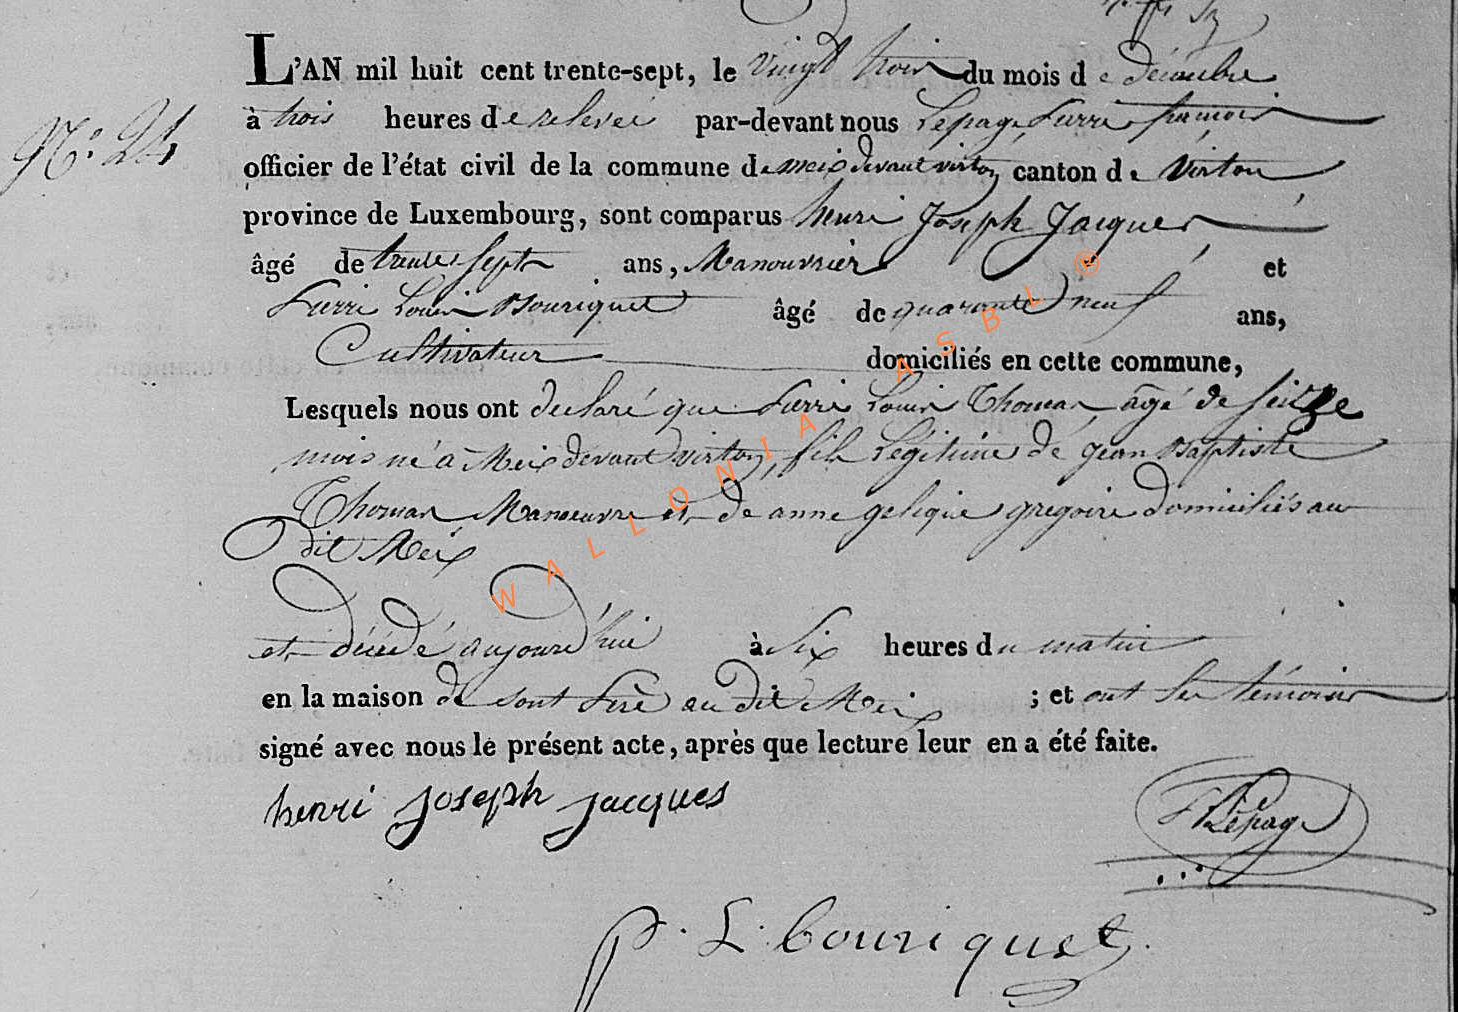 L'AN mil huit cent trente-sept, le vingt trois du mois de décembre
N.° 24
à trois heures de relevée par-devant nous Lepage Pierre francois
officier de l'état civil de la commune de meix devant virton canton de Virton
province de Luxembourg, sont comparus henri Joseph Jacques
âgé de trente sept ans, Manouvrier et
Pierre Louis Bouriquet âgé de quarante neuf ans,
Cultivateur domiciliés en cette commune,
Lesquels nous ont déclaré que Pierre Louis Thomas, âgé de seizze
mois né à Meix devant virton, fils Légitime de jean Baptiste
Thomas Manoeuvre et de anne gelique gregoire domiciliés au
dit Meix
et décédé aujourd'hui à six heures du matin
en la maison de sont Pere au dit Meix ; et ont les témoins
signé avec nous le présent acte, après que lecture leur en a été faite.
henri joseph jacques
Lepage
p. L. bouriquet.
WALLONIA ASBL ®